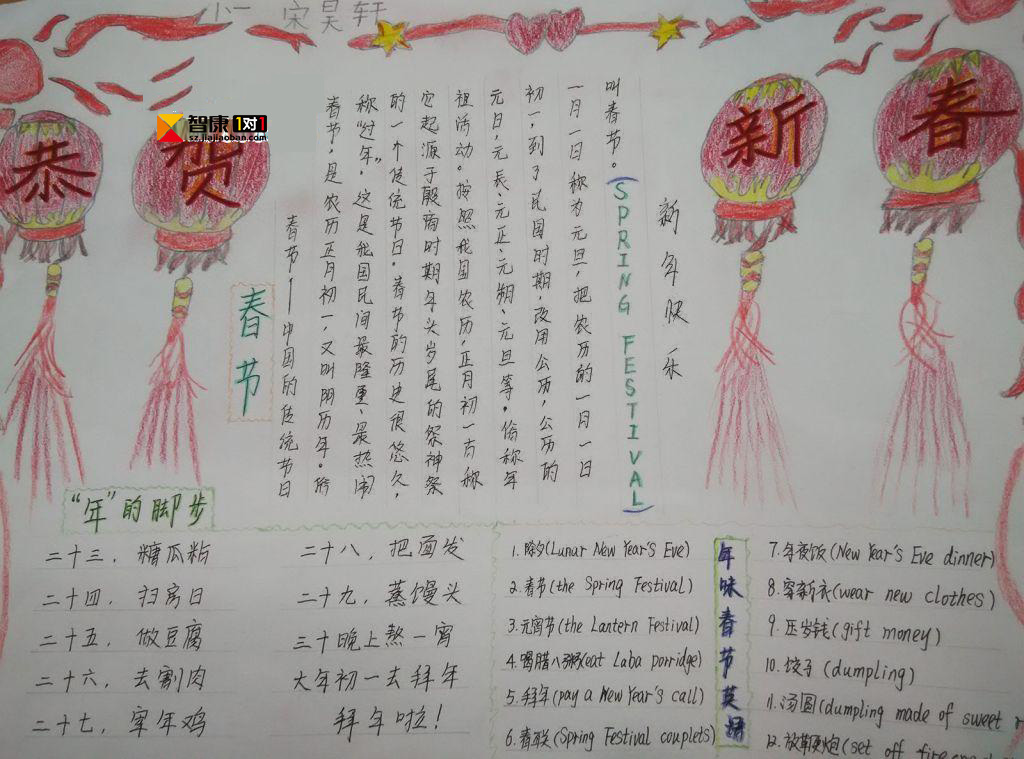 小一 宋昊轩
恭贺新春
智康1对1
sz.jiajiaoban.com
春节
春节——中国的传统节日
春节,是农历正月初一,又叫阴历年。俗
称“过年”。这是我国民间最隆重、最热闹
的一个传统节日。春节的历史很悠久,
它起源于殷商时期年头岁尾的祭神祭
祖活动。按照我国农历,正月初一古称
元日、元辰、元正、元朔、元旦等,俗称年
初一,到了民国时期,改用公历,公历的
一月一日称为元旦,把农历的一日一日
叫春节。
(SPRING FESTIVAL)
新年快乐
“年”的脚步
二十三,糖瓜粘
二十四,扫房日
二十五,做豆腐
二十六,去割肉
二十七,宰年鸡
二十八,把面发
二十九,蒸馒头
三十晚上熬一宵
大年初一去拜年
拜年啦!
年味春节英语
1.除夕(Lunar New Year's Eve)
2.春节(the Spring Festival)
3.元宵节(the Lantern Festival)
4.喝腊八粥(eat Laba porridge)
5.拜年(pay a New Year's call)
6.春联(Spring Festival couplets)
7.年夜饭(New Year's Eve dinner)
8.穿新衣(wear new clothes)
9.压岁钱(gift money)
10.饺子(dumpling)
11.汤圆(dumpling made of sweet
12.放鞭炮(set off